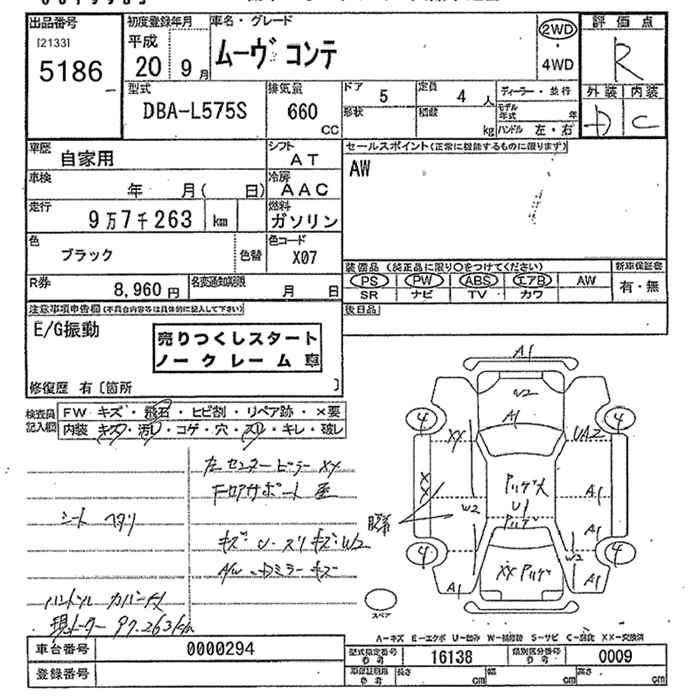 出品番号
[2133]
5186
初度登録年月
平成
20 9月
車名・グレード
ムーヴ コンテ
2WD
4WD
評価点
R
外装 内装
D C
型式
DBA-L575S
排気量
660
CC
ドア 5
定員 4 人
形状
積数 kg
ディーラー・並行
モデル年式 年
ハンドル 左・右
車歴 自家用
シフト AT
セールスポイント(正常に機能するものに限ります)
AW
車検 年 月( 日)
冷房 AAC
走行 9万7千263 km
燃料 ガソリン
色 ブラック 色替
色コード X07
装備品 (純正品に限り○をつけてください)
新車保証書
PS PW ABS エアB AW
有・無
SR ナビ TV カワ
R券 8,960円
名変通知期限 月 日
後日品
注意事項申告欄(不具合内容等は具体的に記入して下さい)
E/G振動
売りつくしスタート
ノークレーム 車
修復歴 有〔箇所 〕
検査員記入欄
FW キズ・飛石・ヒビ割・リペア跡・×要
内装・キズ・汚レ・コゲ・穴・スレ・キレ・破レ
左センターピラー XX
フロアサポート
シート ヘタリ
キズ U・スリキズ・W2
A/W ミラー キズ
ハンドル カバー
現メーター 97.263km
A1
W2
A1
4
4
XX
UA2
XX
W2
U1
A1
A1
W2
4
4
A1
XX
A1
A1
スペア
A-キズ E-エクボ U-凹み W-補修跡 S-サビ C-腐蝕 XX-交換済
車台番号 0000294
登録番号
型式指定番号 参考 16138
類別区分番号 参考 0009
車庫証明用 参考 長さ cm 幅 cm 高さ cm